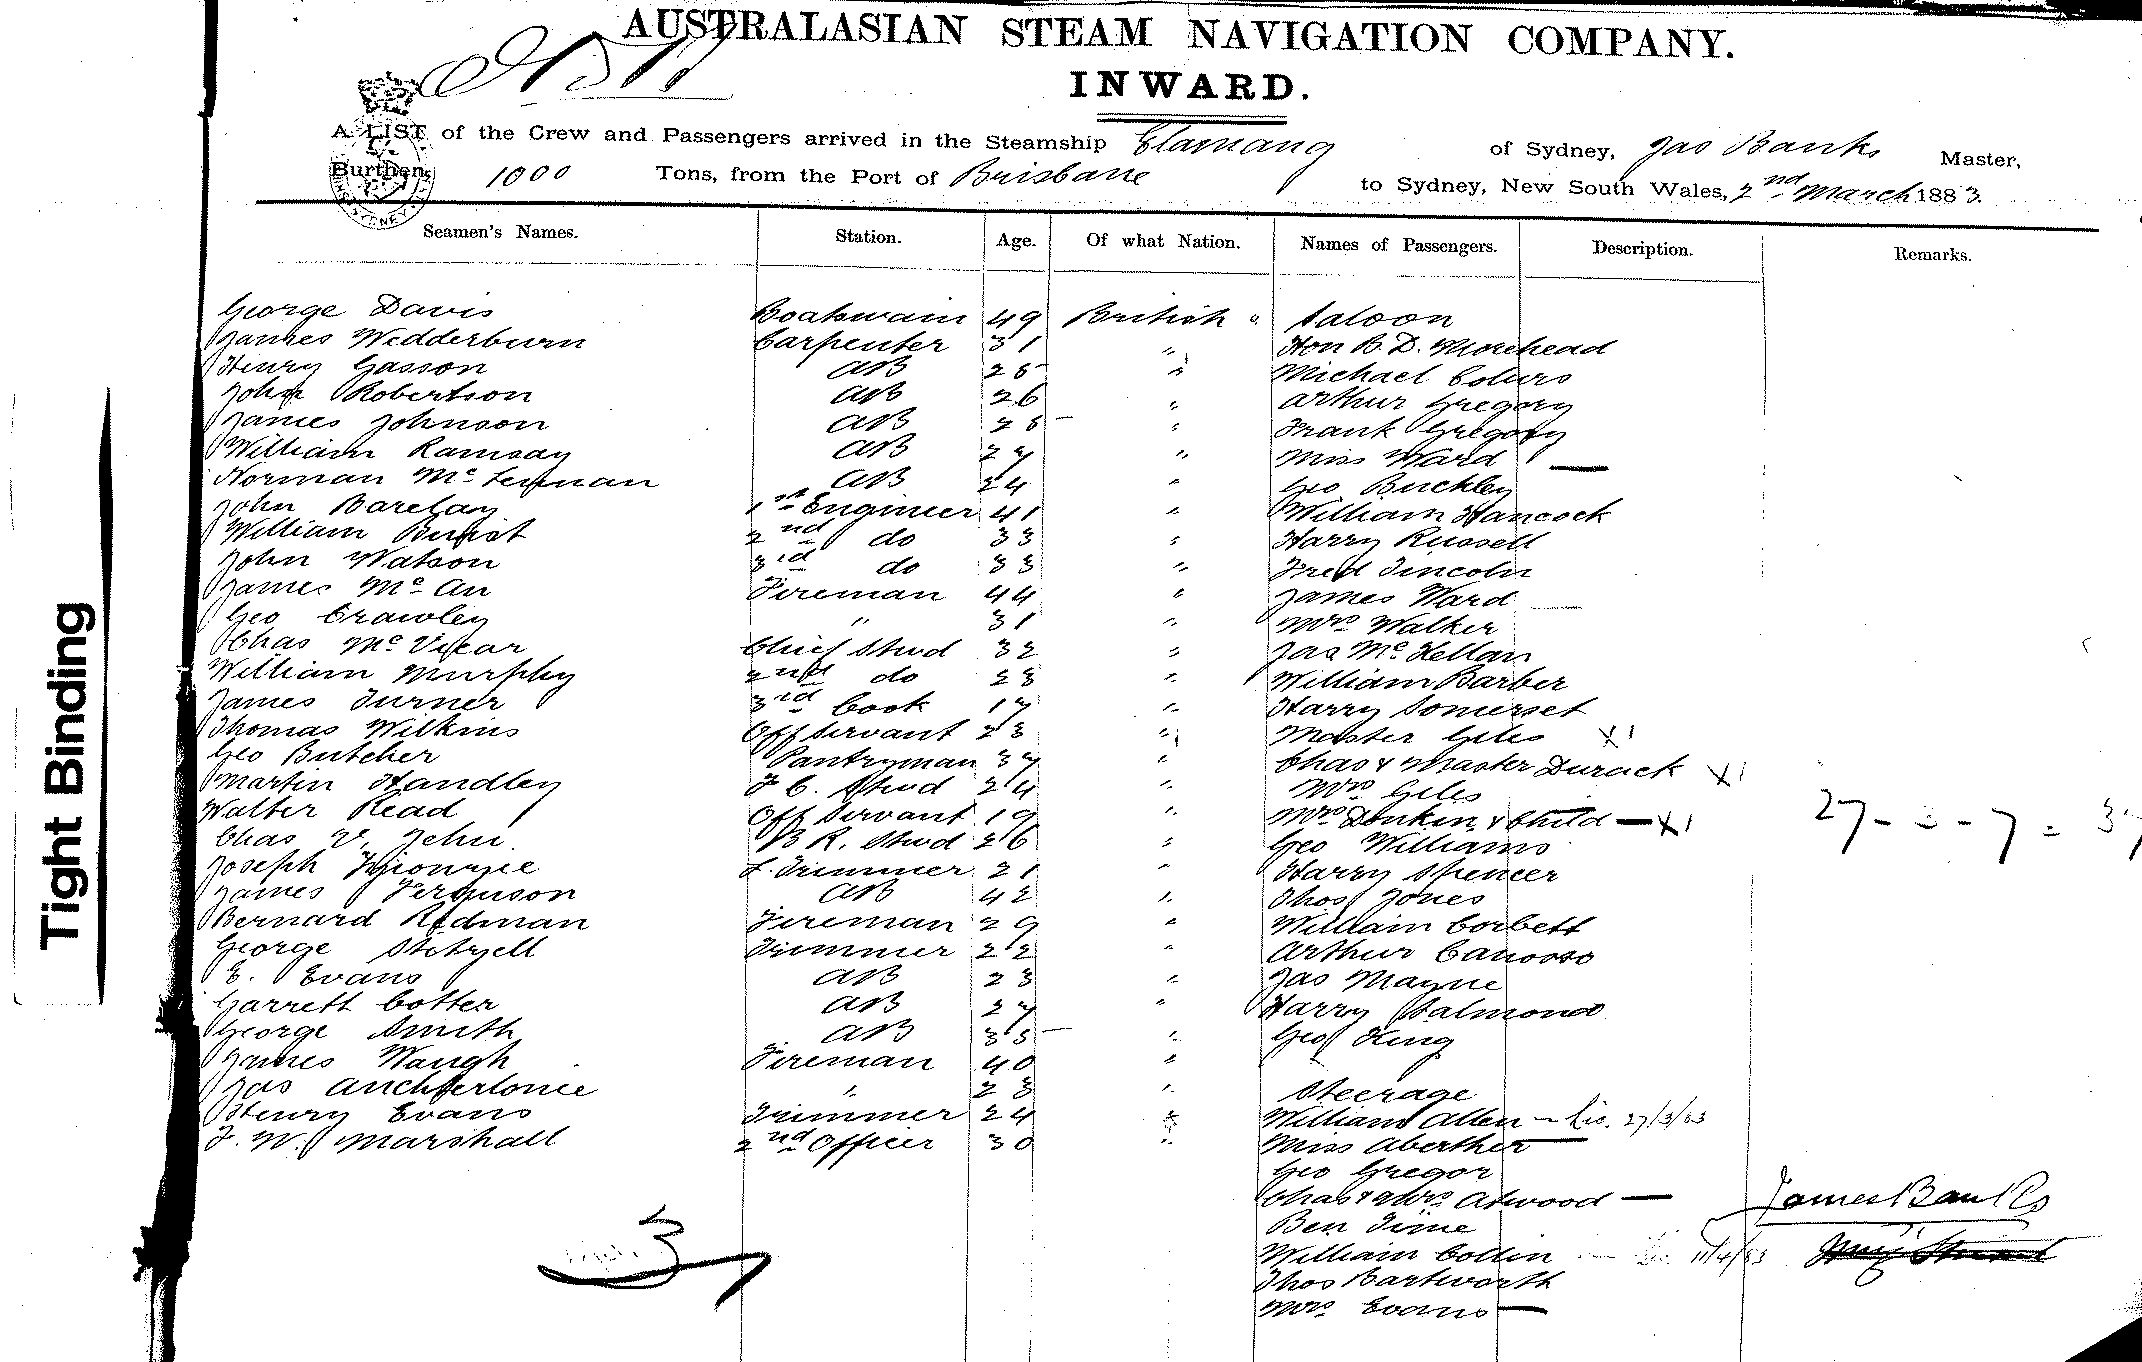 AUSTRALASIAN STEAM NAVIGATION COMPANY.
INWARD.
A LIST of the Crew and Passengers arrived in the Steamship Elamang of Sydney, Jas Banks Master,
Burthen 1000 Tons, from the Port of Brisbane to Sydney, New South Wales, 2nd March 1883.
Seamen's Names. Station. Age. Of what Nation. Names of Passengers. Description. Remarks.
George Davis Boatswain 49 British " Saloon
James Wedderburn Carpenter 31 " Hon B. D. Morehead
Henry Gasson AB 25 " Michael
John Robertson AB 26 " Arthur Gregory
James Johnson AB 28 " Frank Gregory
William Ramsay AB 27 " Miss Ward
Norman Mc Lennan AB 24 " Geo Buckley
John Barclay 1st Engineer 41 " William Hancock
William 2nd do 33 " Harry Russell
John Watson 3rd do 33 " Fred Lincoln
James Mc An Fireman 44 " James Ward
Geo Crawley " 31 " Mrs Walker
Chas Mc Vicar Chief Stwd 32 " Jas Mc Kellan
William Murphy 2nd do 28 " William Barber
James Turner 3rd Cook 17 " Harry Somerset
Thomas Wilkins Off Servant 23 " Master Giles X1
Geo Butcher Pantryman 37 " Chas & Master Durack X1
Martin Handley F C. Stwd 24 " Mrs Giles
Walter Read Off Servant 19 " Mrs Donkin & Child X1 27 - - 7 =
Chas V. Jehn B R. Stwd 26 " Geo Williams
Joseph F. Trimmer 21 " Harry Spencer
James Ferguson AB 42 " Thos Jones
Bernard Redman Fireman 29 " William Corbett
George Trimmer 22 " Arthur Canosso
E. Evans AB 23 " Jas Mayne
Garrett Cotter AB 27 " Harry Salmond
George Smith AB 35 " Geo King
James Waugh Fireman 40 "
Jas Anchterlonie " 23 " Steerage
Henry Evans Trimmer 24 " William Allen - Lic. 27/3/83
F. W. Marshall 2nd Officer 30 " Miss Aberther
Geo Gregor
Chas & Mrs Atwood
James Banks
Ben Time
William Collin 11/4/83
Thos Bartworth
Mrs Evans
Tight Binding